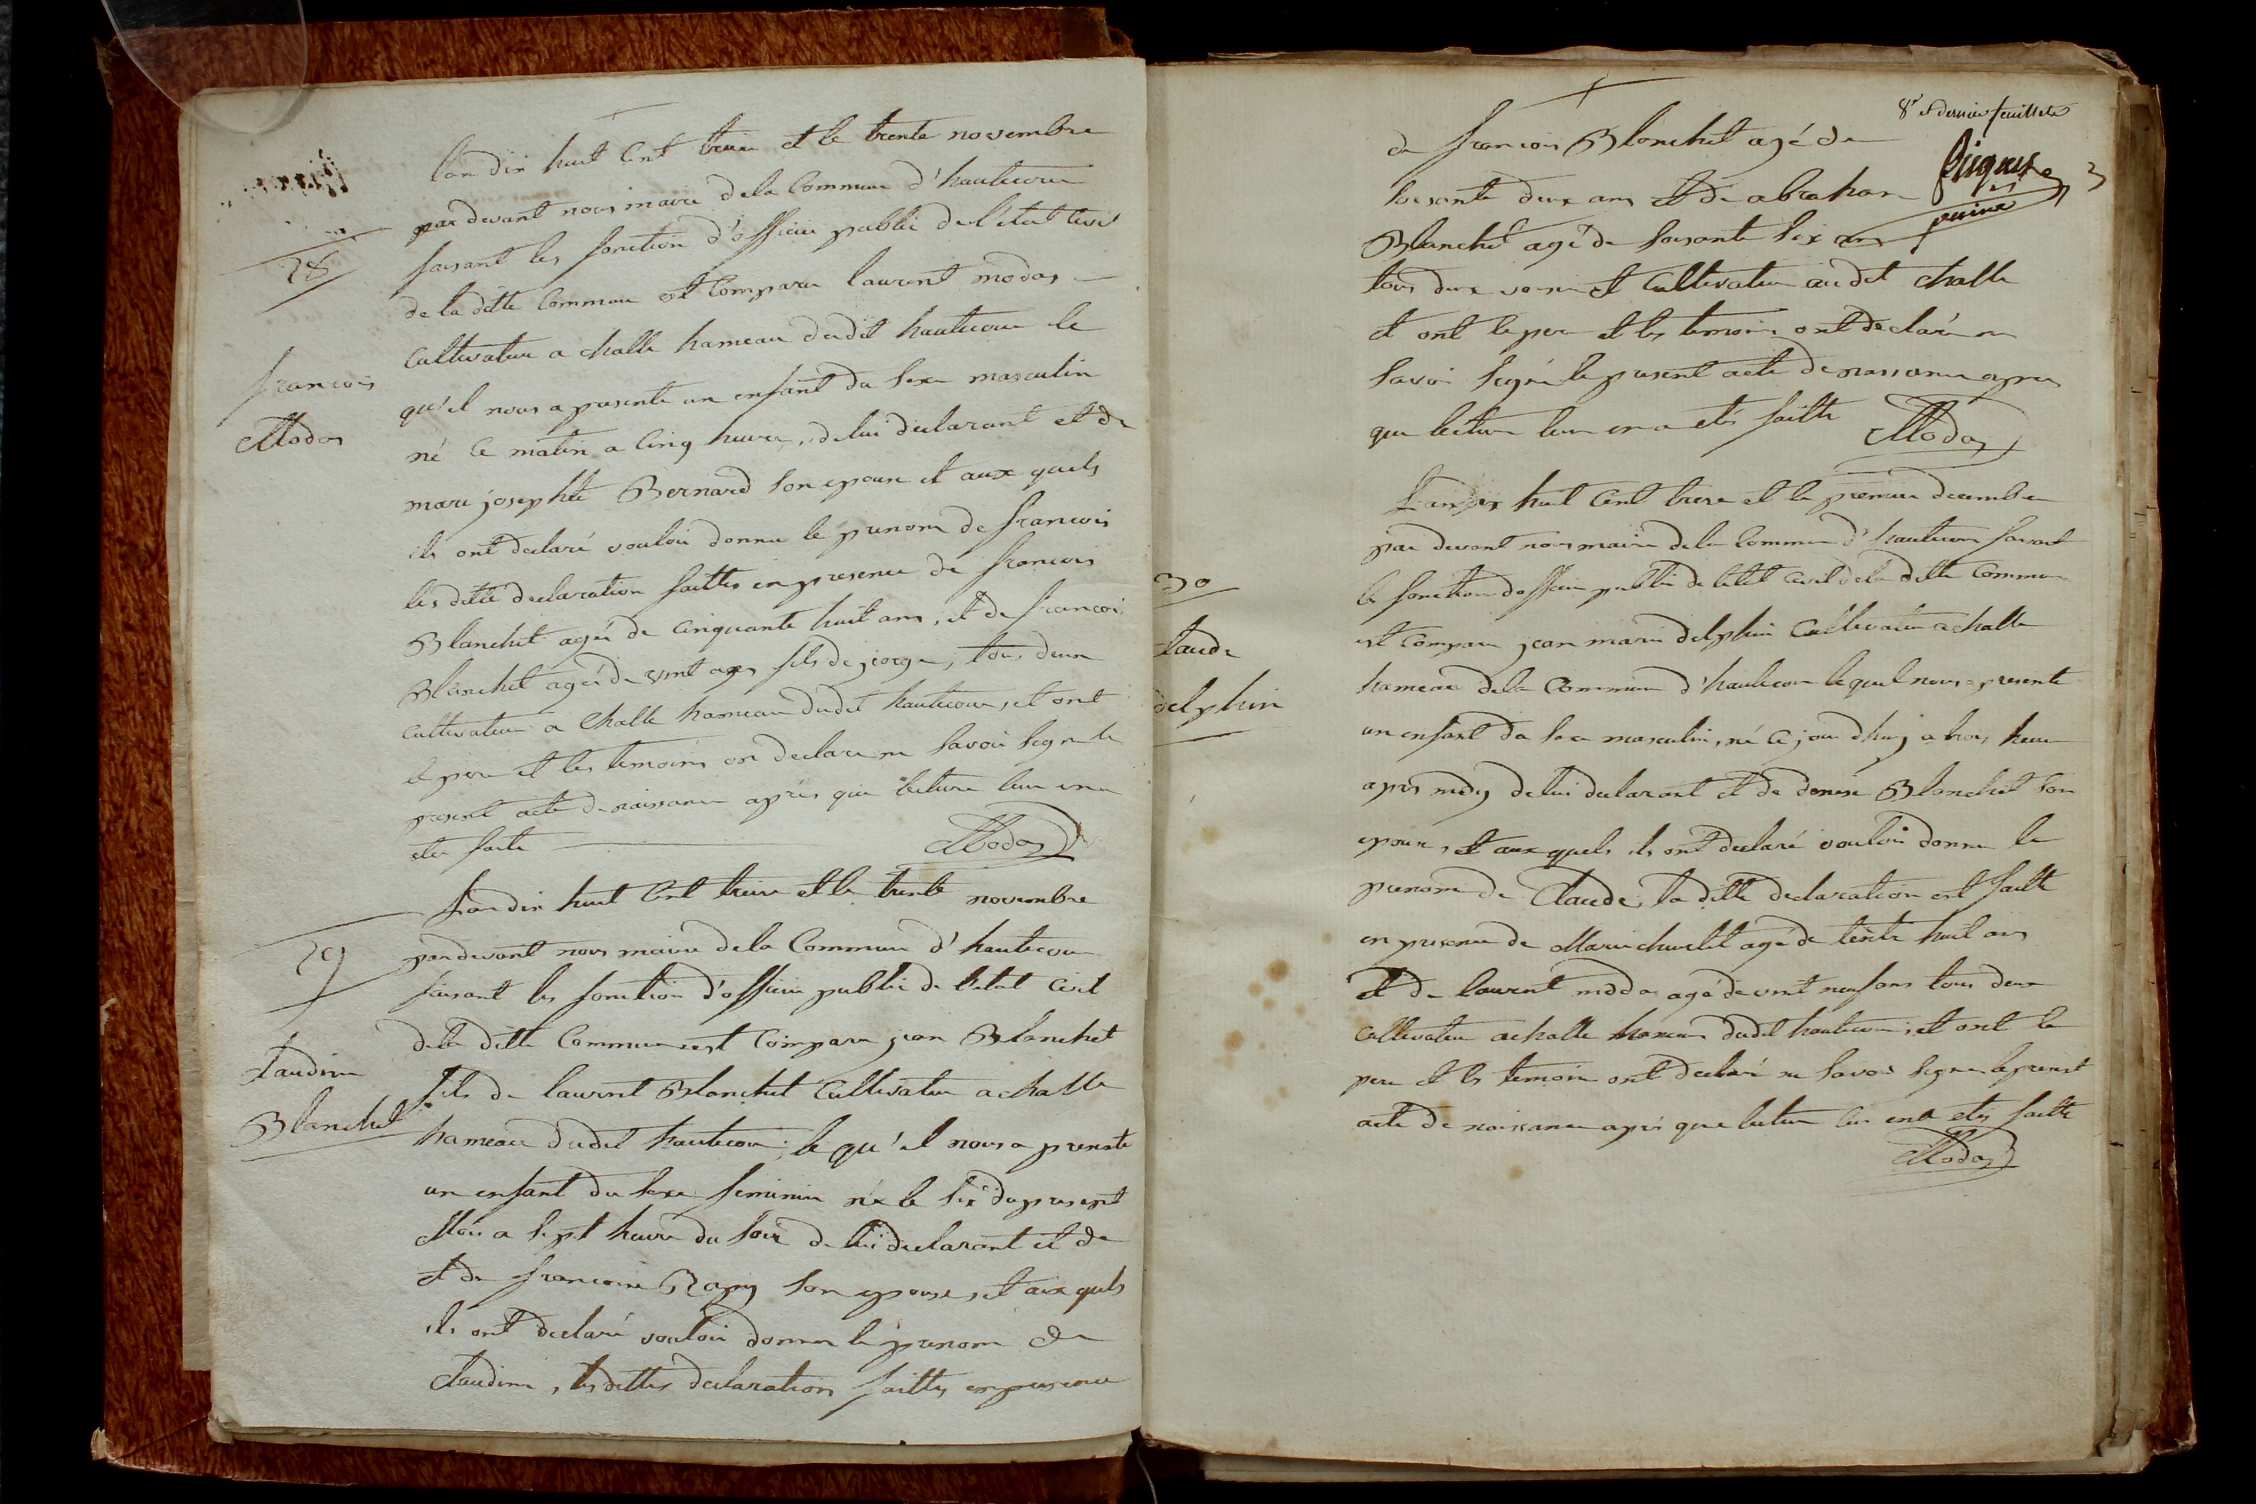 28
françois
Modas
lan dix huit cent treize et le trente novembre
par devant nous maire dela Commune d'hautecour
faisant les fonction d'officier publié de l'état civil
de la ditte Commune est Comparu laurent modas
Cultivateur a challe hameau dudit hautecour le
qu'el nous a presenté un enfant du sexe masculin
né ce matin a cinq heure, de lui declarant et de
marie josephte Bernard son epouse et aux quels
ils ont declaré vouloir donner le prenom de françois
les dette declaration faittes en presence de françois
Blanchet agée de cinquante huit ans, et de françois
Blanchet agée de vint ans fils de jorge, tous deux
cultivateur a Challe hameau dudit hautecour, et ont
le pere et les temoins on declare ne savoir signer le
present acte de naissance aprés que lecture leur en a
etée faite
Modas
29
Claudine
Blanchet
Lan dix huit cent treize et le trente novembre
par devant nous maire dela Commune d'hautecour
faisant les fonction d'officier publié de l'etat civil
dela ditte Commune est Comparu jean Blanchet
fils de laurent Blanchet Cultivateur a challe
hameau dudit hautecour; le qu'el nous a presenté
un enfant du sexe feminin née le six du present
Mois a sept heure du soir de lui declarant et de
et de françoise Rapy son epouse, et aux quels
ils ont declaré vouloir donner le prenom de
Claudine, les dittes declaration faittes en presence
8e et dernier feuillete
de françois Blanchet agé de
soisante deux ans et de abraham
Blanchet agé de soisante six ans
tous deux voisin et Cultivateur audit challe
et ont le pere et les temoins ont declaré ne
savoir signer le present acte de naissance apres
que lecture leur en a etés faitte
Modas
30
Claude
delphin
Lan dix huit cent treze et le premier decembre
par devant nous maire dela Commune d'hautecour faisant
les fonction d'officier publié de l'etat civil dela ditte Commune
est Comparu jean marie delphin Cultivateur a challe
hameau dela Commune d'hautecour le quel nous a presenté
un enfant du sexe masculin, né ce jour d'huy a trois heure
aprés midy de lui declarant et de denise Blanchet son
epouse, et aux quels ils ont declaré vouloir donner le
prenom de Claude, la ditte declaration est faitte
en presence de Marie agé de trente huit ans
et de laurent modas agé de vint neuf ans tous deux
cultivateur a challe hameau dudit hautecour, et ont le
pere et les temoin ont declaré ne savoir signer le present
acte de naissance aprés que lecture leur en a etés faitte
Modas